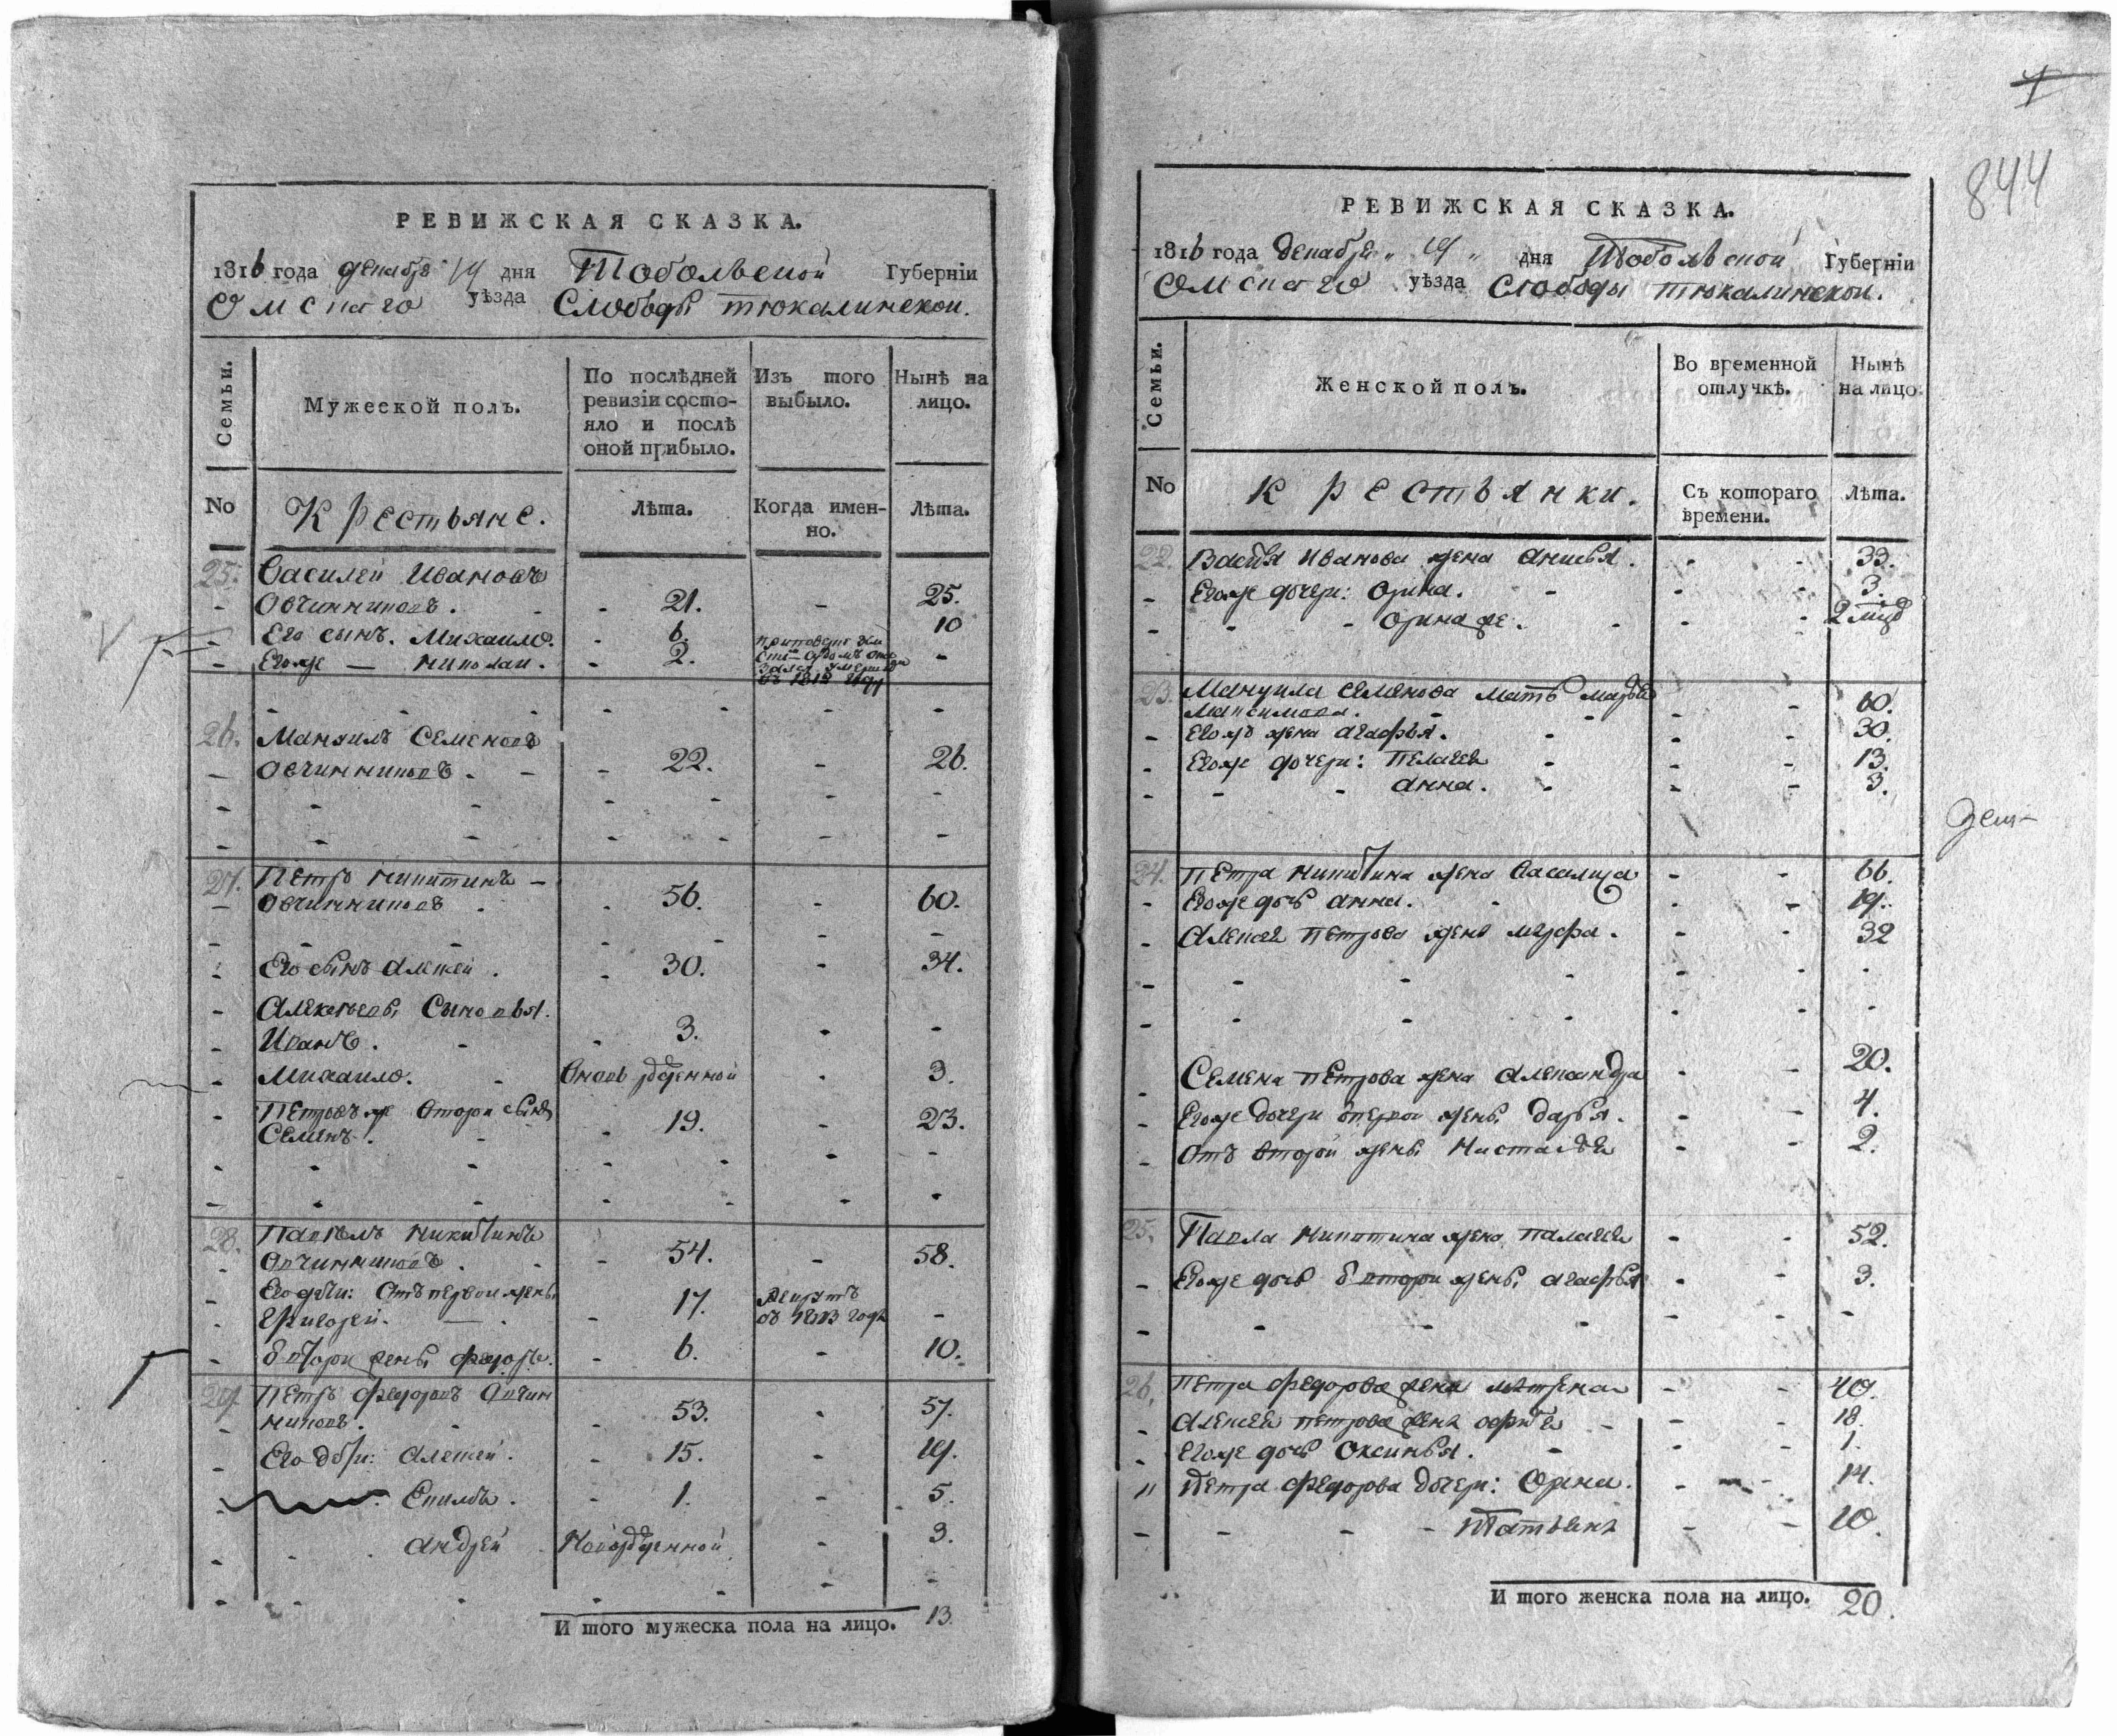 РЕВИЖСКАЯ СКАЗКА.
1816 года декабря 19 дня Тобольской Губерніи
Омскаго уѣзда Слободы тюкалинской.
Семьи. Мужеской полъ. По послѣдней ревизіи состояло и послѣ оной прибыло. Изъ того выбыло. Нынѣ на лицо.
No Крестьяне. Лѣта. Когда именно. Лѣта.
25. Василей Ивановъ
Овчинниковъ. 21. 25.
Его сынъ. Михаило. 6. 10
Егоже — Николаи. 2.
въ 1812 году
26. Мануилъ Семеновъ
Овчинниковъ. 22. 26.
27. Петръ Никитинъ
Овчинниковъ 56. 60.
Его сынъ Алексей. 30. 34.
Алексеевы Сыновья.
Иванъ. 3.
Михаило. вновь рожденной 3.
Петровъ же второи сынъ
Семенъ. 19. 23.
28. Павелъ Никитинъ
Овчинниковъ. 54. 58.
Его дѣти: Отъ первои жены
Григорей. 17. Рекрутъ въ 1813 году
второи жены Федоръ. 6. 10.
29. Петръ Федоровъ Овчин
никовъ. 53. 57.
Его дѣти: Алексей. 15. 19.
1. 5.
Андрей Новорожденной 3.
И того мужеска пола на лицо. 13.
844
РЕВИЖСКАЯ СКАЗКА.
1816 года декабря 19 дня Тобольской Губерніи
Омскаго уѣзда Слободы тюкалинской.
Семьи. Женской полъ. Во временной отлучкѣ. Нынѣ на лицо.
No Крестьянки. Съ котораго времени. Лѣта.
22. Васілья Иванова жена Анисья. 33.
Егоже дочери: Орина. 3.
Орина же. 2 мѣд
23. Мануила Семенова мать марья
Максимова. 60.
Егожъ жена Агафья. 30.
Егоже дочери: Пелагея 13.
Анна. 3.
24. Петра Никитина жена Васалиса 66.
Егоже дочь Анна. 19.
Алексея Петрова жена марфа. 32
Семена Петрова жена Александра 20.
Егоже дочери от первои жены Дарья. 4.
Отъ второй жены Настасья 2.
25. Павла Никитина жена Палагея 52.
Егоже дочь второи жены Агафья 3.
26. Петра Федорова жена матрена 49.
Алексея Петрова жена 18.
Егоже дочь Оксинья. 1.
Петра Федорова дочери: Орина. 14.
Татьяна 10.
И того женска пола на лицо. 20.